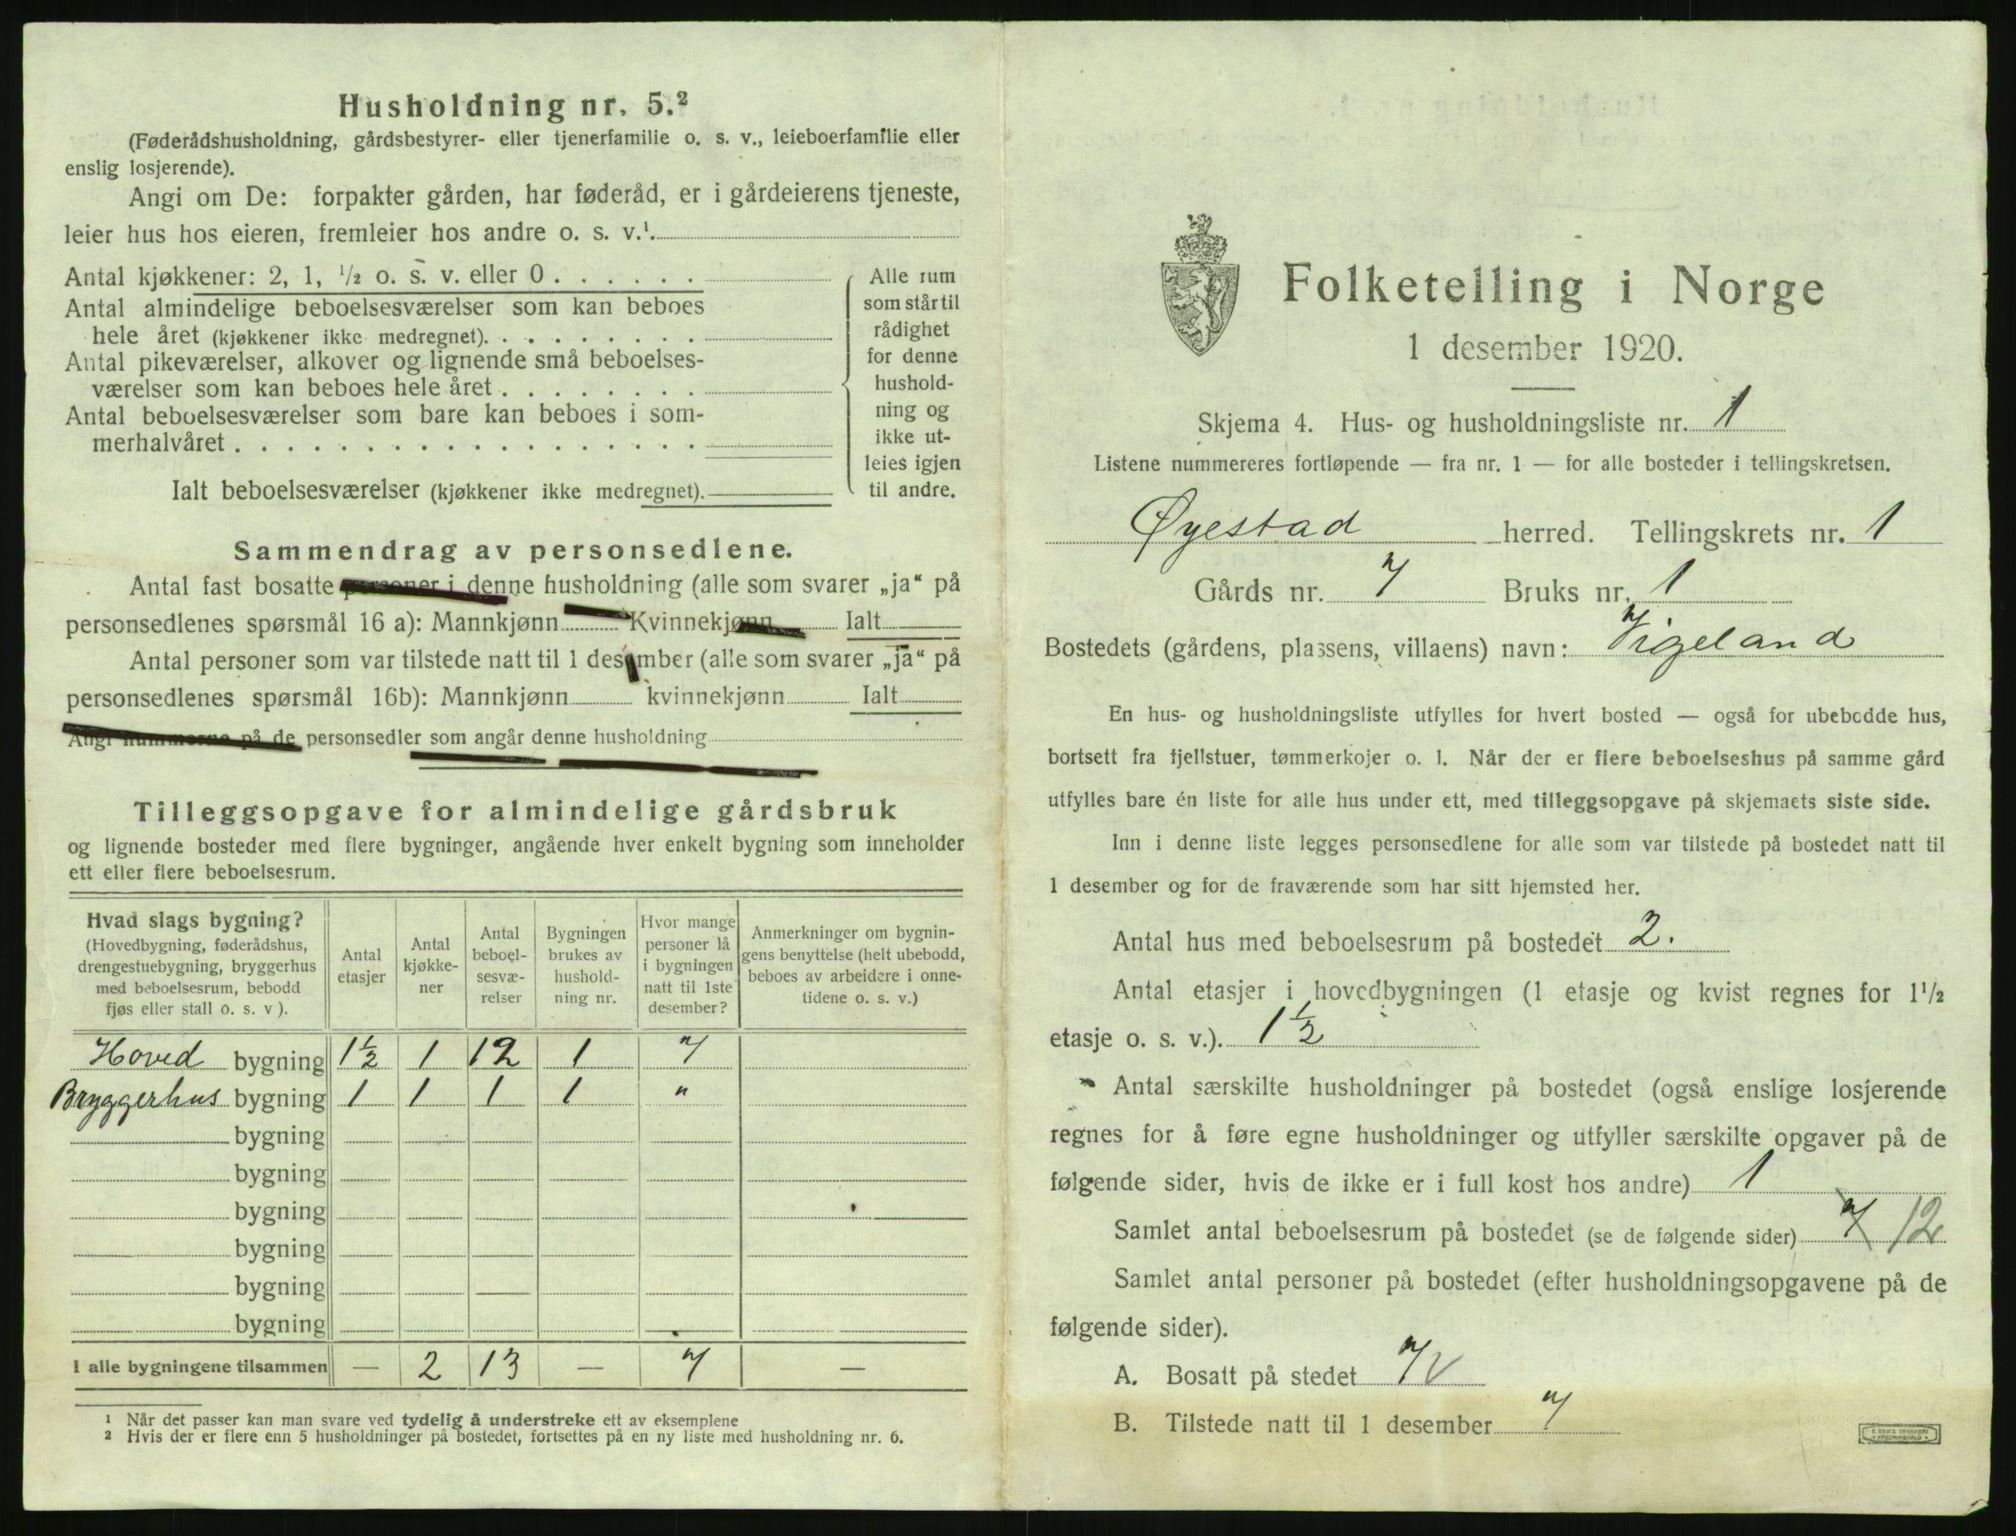 Husholdning nr. 5.²
(Føderådshusholdning, gårdsbestyrer- eller tjenerfamilie o. s. v., leieboerfamilie eller
enslig losjerende).
Angi om De: forpakter gården, har føderåd, er i gårdeierens tjeneste,
leier hus hos eieren, fremleier hos andre o. s. v.¹.
Antal kjøkkener: 2, 1, ½ o. s. v. eller 0 . . . . . .
Antal almindelige beboelsesværelser som kan beboes
hele året (kjøkkener ikke medregnet). . . . . . . . .
Antal pikeværelser, alkover og lignende små beboelses-
værelser som kan beboes hele året . . . . . . . .
Antal beboelsesværelser som bare kan beboes i som-
merhalvåret . . . . . . . . . . . . . . . . . .
Ialt beboelsesværelser (kjøkkener ikke medregnet).
Alle rum
som står til
rådighet
for denne
hushold-
ning og
ikke ut-
leies igjen
til andre.
Sammendrag av personsedlene.
Antal fast bosatte personer i denne husholdning (alle som svarer „ja“ på
personsedlenes spørsmål 16 a): Mannkjønn Kvinnekjønn Ialt
Antal personer som var tilstede natt til 1 desember (alle som svarer „ja“ på
personsedlenes spørsmål 16b): Mannkjønn kvinnekjønn Ialt
Angi nummerne på de personsedler som angår denne husholdning
Tilleggsopgave for almindelige gårdsbruk
og lignende bosteder med flere bygninger, angående hver enkelt bygning som inneholder
ett eller flere beboelsesrum.
Hvad slags bygning?
(Hovedbygning, føderådshus,
drengestuebygning, bryggerhus
med beboelsesrum, bebodd
fjøs eller stall o. s. v ).
Antal
etasjer
Antal
kjøkke-
ner
Antal
beboel-
sesvæ-
relser
Bygningen
brukes av
hushold-
ning nr.
Hvor mange
personer lå
i bygningen
natt til 1ste
desember?
Anmerkninger om bygnin-
gens benyttelse (helt ubebodd,
beboes av arbeidere i onne-
tidene o. s. v.)
Hoved bygning 1½ 1 12 1 7
Bryggerhus bygning 1 1 1 1 "
bygning
bygning
bygning
bygning
bygning
bygning
I alle bygningene tilsammen — 2 13 — 7 —
¹ Når det passer kan man svare ved tydelig å understreke ett av eksemplene
² Hvis der er flere enn 5 husholdninger på bostedet, fortsettes på en ny liste med husholdning nr. 6.
Folketelling i Norge
1 desember 1920.
Skjema 4. Hus- og husholdningsliste nr. 1
Listene nummereres fortløpende — fra nr. 1 — for alle bosteder i tellingskretsen.
Øyestad herred. Tellingskrets nr. 1
Gårds nr. 7 Bruks nr. 1
Bostedets (gårdens, plassens, villaens) navn: Vigeland
En hus- og husholdningsliste utfylles for hvert bosted — også for ubebodde hus,
bortsett fra fjellstuer, tømmerkojer o. l. Når der er flere beboelseshus på samme gård
utfylles bare én liste for alle hus under ett, med tilleggsopgave på skjemaets siste side.
Inn i denne liste legges personsedlene for alle som var tilstede på bostedet natt til
1 desember og for de fraværende som har sitt hjemsted her.
Antal hus med beboelsesrum på bostedet 2.
Antal etasjer i hovedbygningen (1 etasje og kvist regnes for 1½
etasje o. s. v.). 1½
Antal særskilte husholdninger på bostedet (også enslige losjerende
regnes for å føre egne husholdninger og utfyller særskilte opgaver på de
følgende sider, hvis de ikke er i full kost hos andre) 1
Samlet antal beboelsesrum på bostedet (se de følgende sider) 7 12
Samlet antal personer på bostedet (efter husholdningsopgavene på de
følgende sider).
A. Bosatt på stedet 7
B. Tilstede natt til 1 desember 7